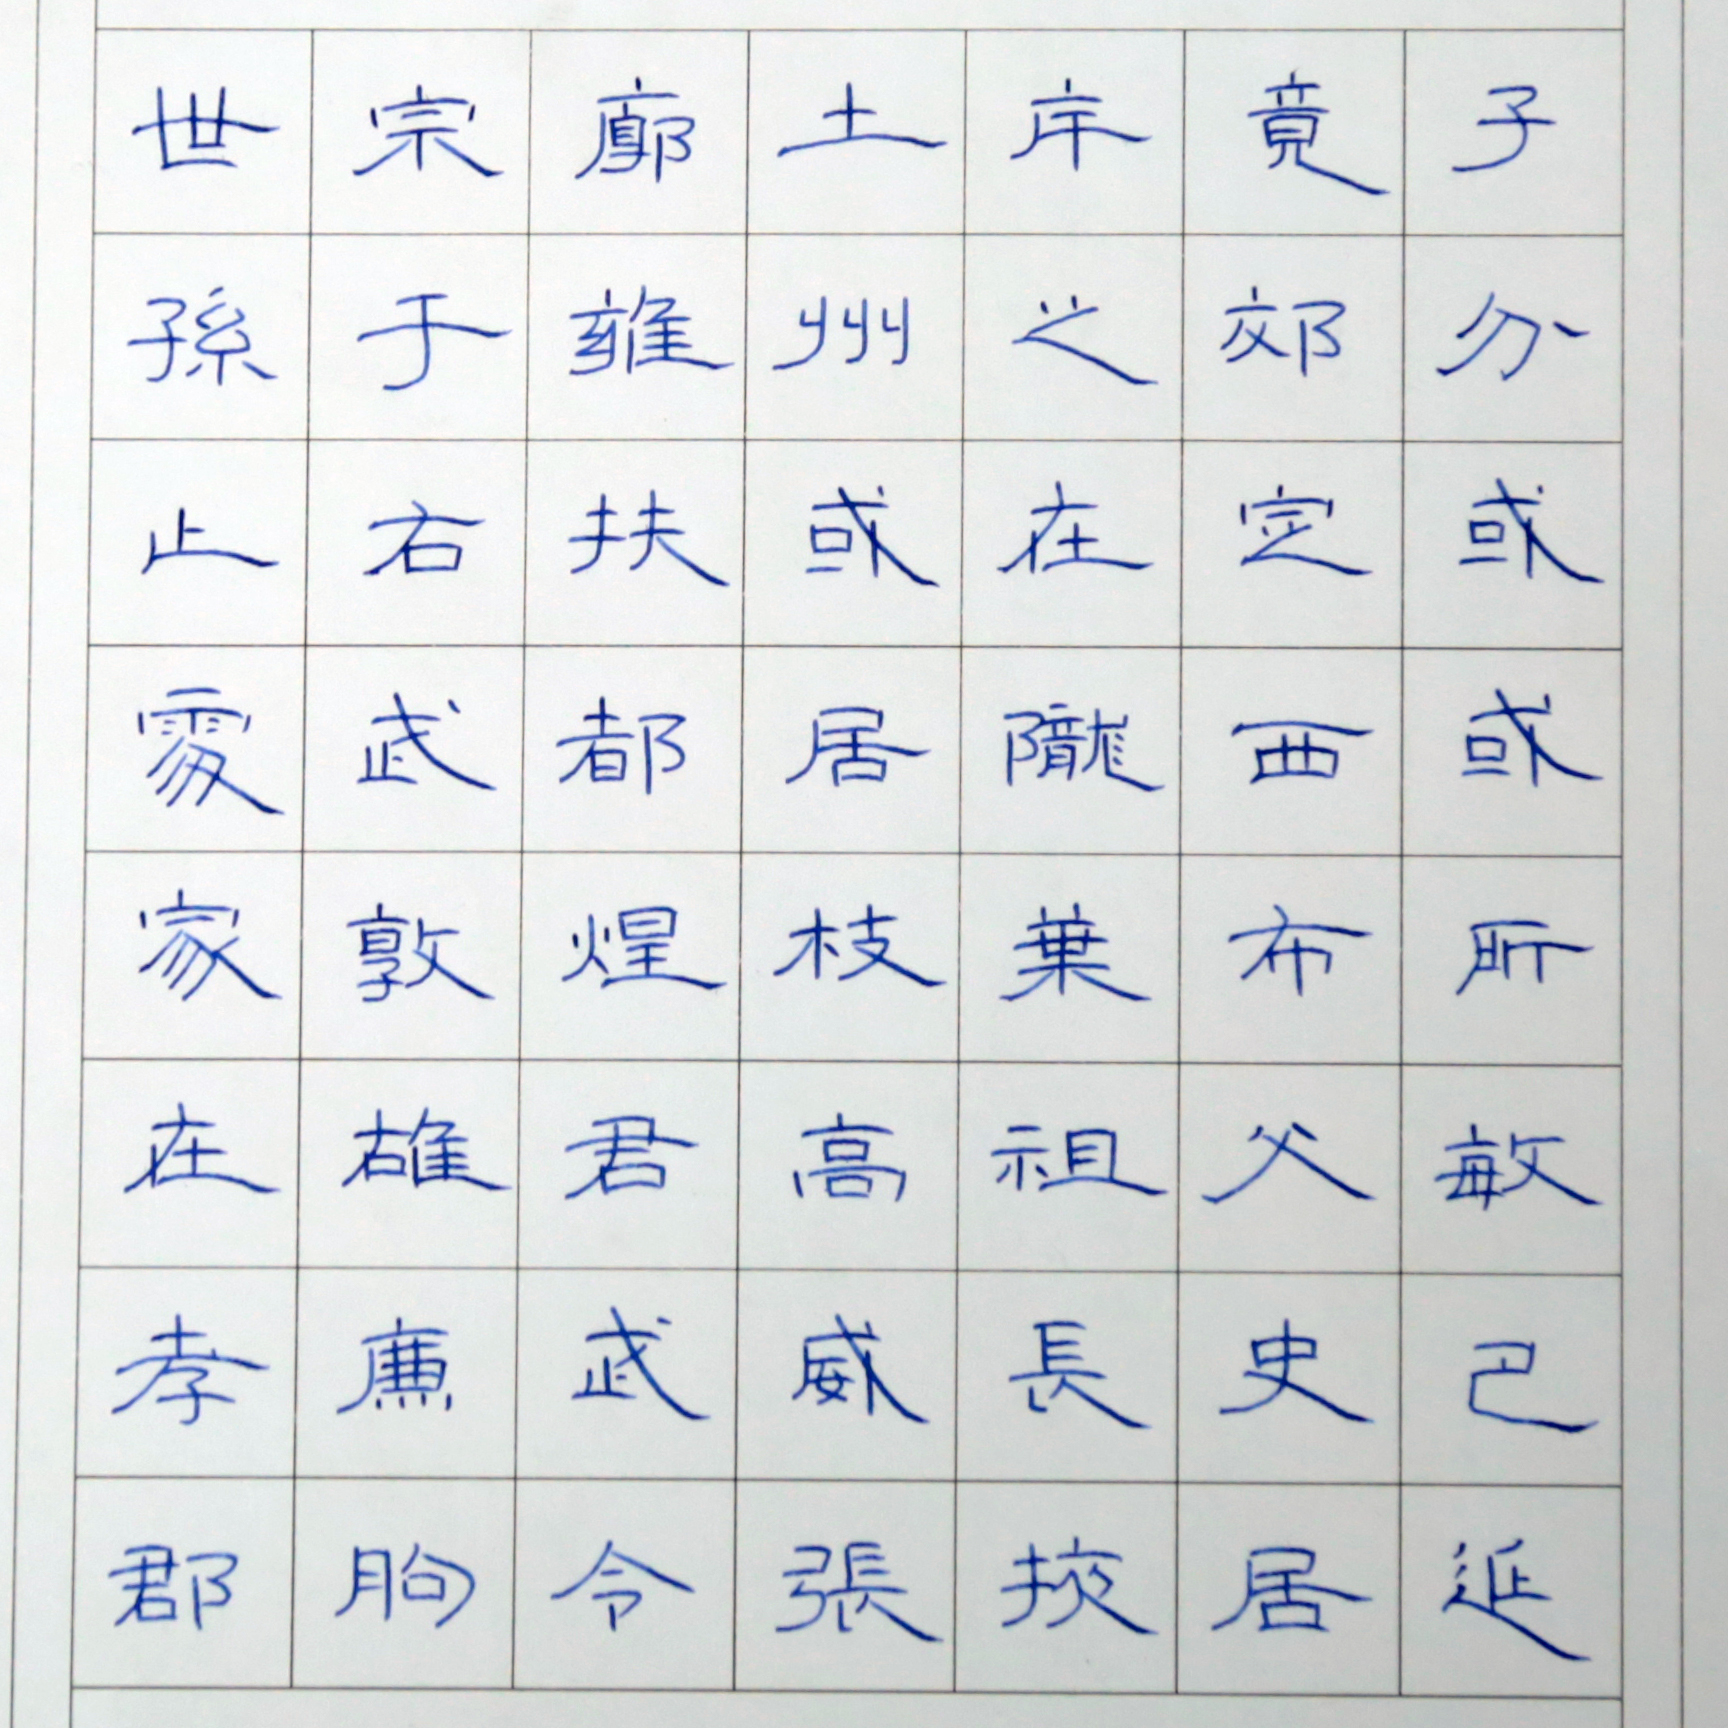 世宗廓土斥竟子
孫于雍州之郊分
止右扶或在定或
處武都居隴西或
家敦煌枝葉布所
在雄君高祖父敏
孝廉武威長史巴
郡朐令張掖居延